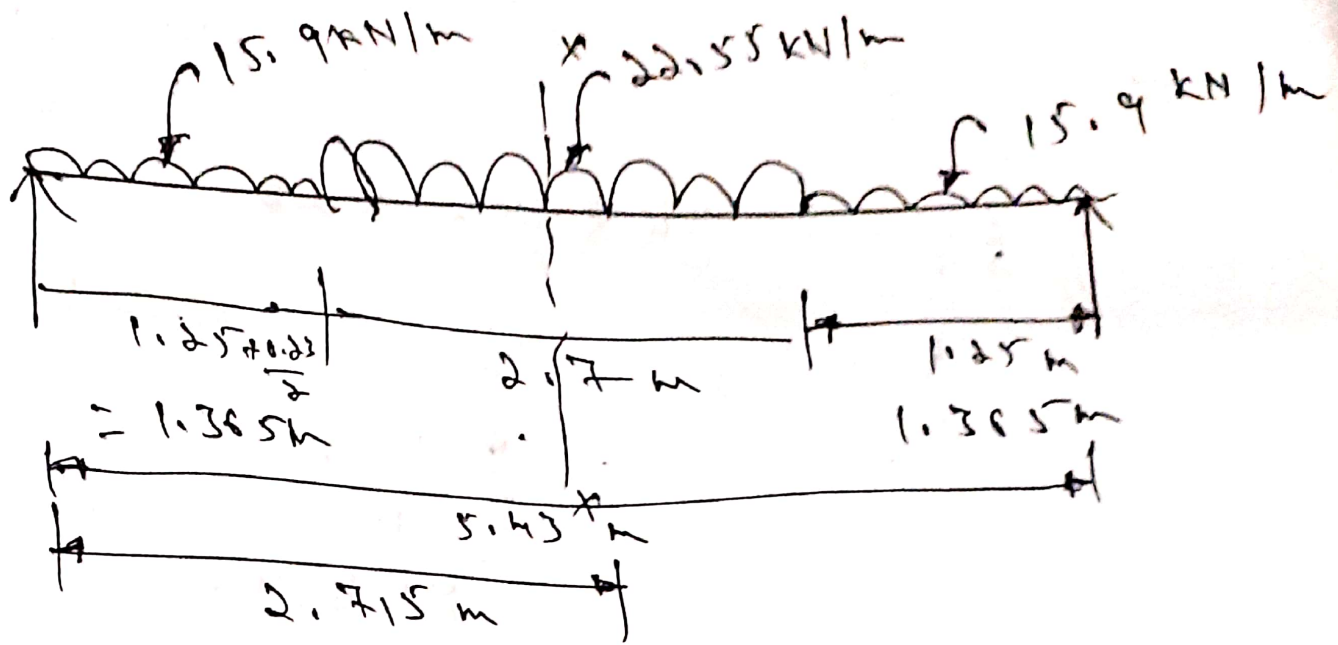 15.9 kN/m
x
22.55 kN/m
15.9 kN/m
1.25 + 0.23/2
= 1.365m
2.7 m
1.25 m
1.365m
5.43 m
x
2.715 m